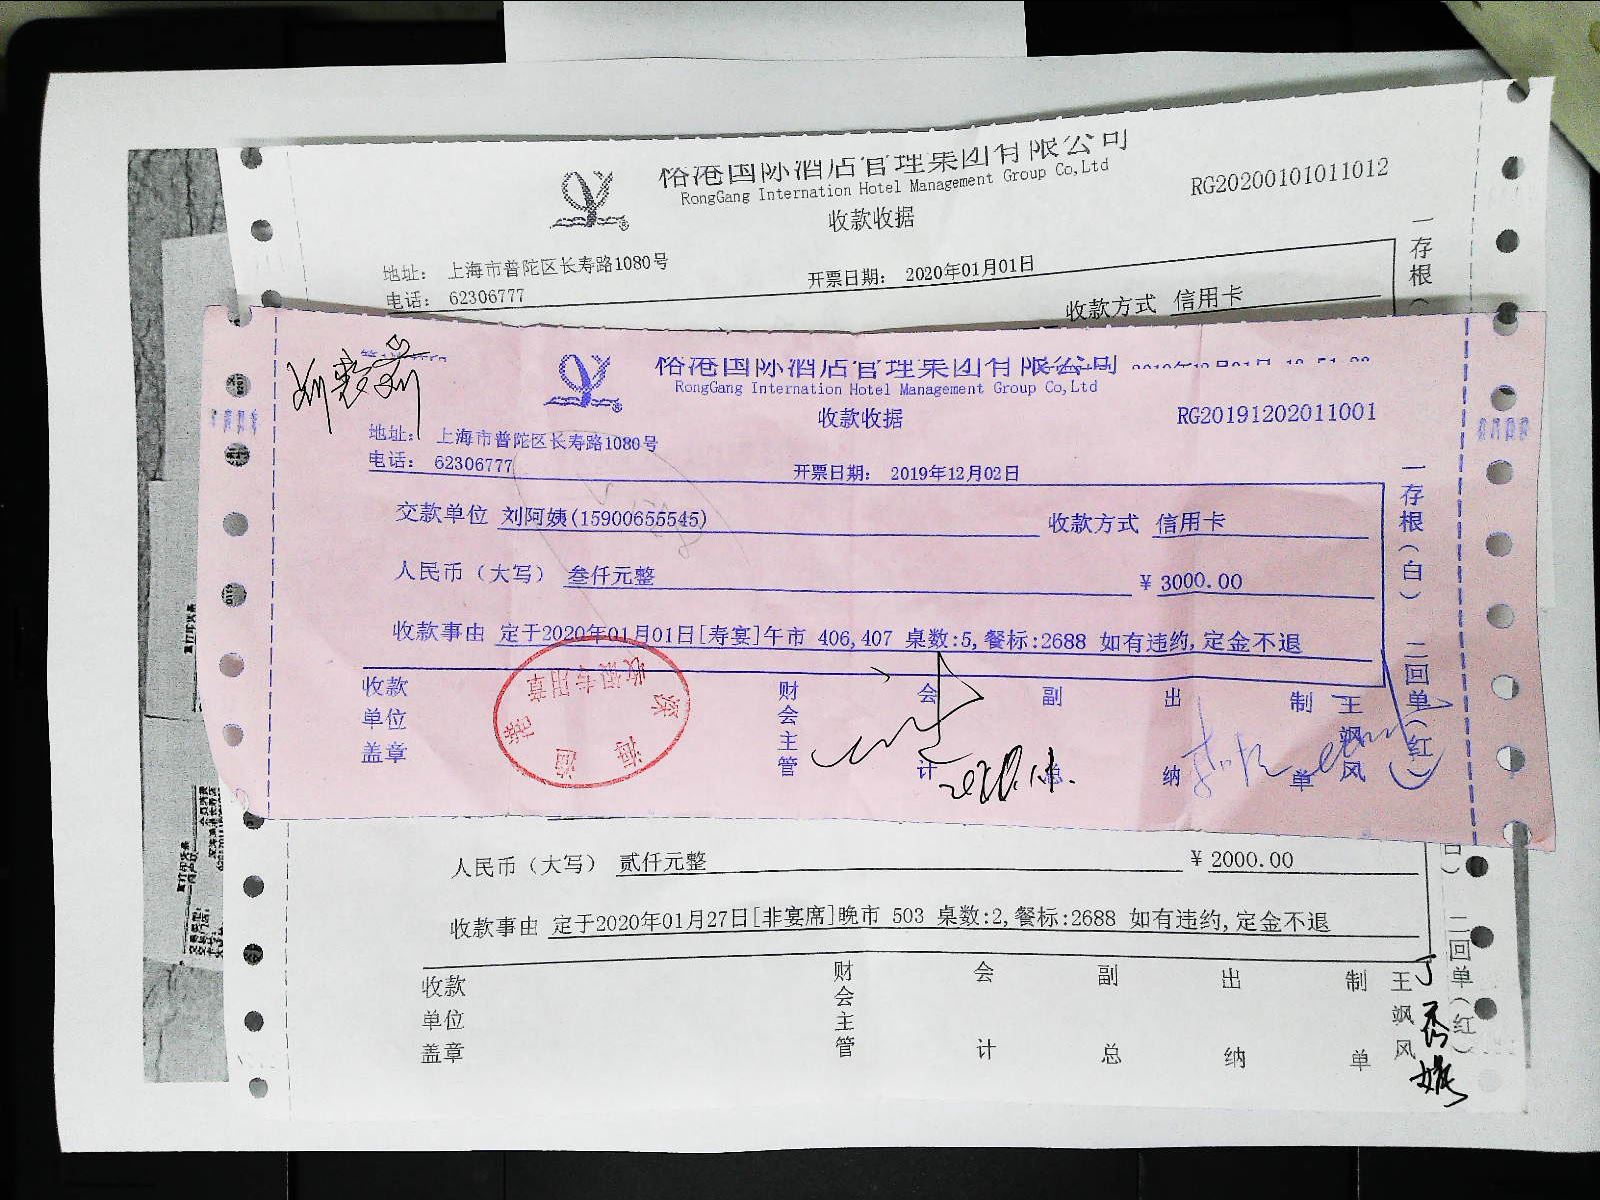 裕港国际酒店管理集团有限公司
RongGang Internation Hotel Management Group Co,Ltd
RG20200101011012
收款收据
地址： 上海市普陀区长寿路1080号
电话： 62306777
开票日期： 2020年01月01日
收款方式 信用卡
一存根（
裕港国际酒店管理集团有限公司
RongGang Internation Hotel Management Group Co,Ltd
收款收据
RG20191202011001
地址： 上海市普陀区长寿路1080号
电话： 62306777
开票日期： 2019年12月02日
交款单位 刘阿姨(15900655545)
收款方式 信用卡
人民币（大写） 叁仟元整
¥ 3000.00
收款事由 定于2020年01月01日[寿宴]午市 406,407 桌数:5,餐标:2688 如有违约,定金不退
收款单位盖章
财会主管
会计
副总
出纳
制单
王飒风
一存根（白） 二回单（红）
收银专用章
2020.1.1.
人民币（大写） 贰仟元整
¥ 2000.00
收款事由 定于2020年01月27日[非宴席]晚市 503 桌数:2,餐标:2688 如有违约,定金不退
收款单位盖章
财会主管
会计
副总
出纳
制单
王飒风
二回单（红）